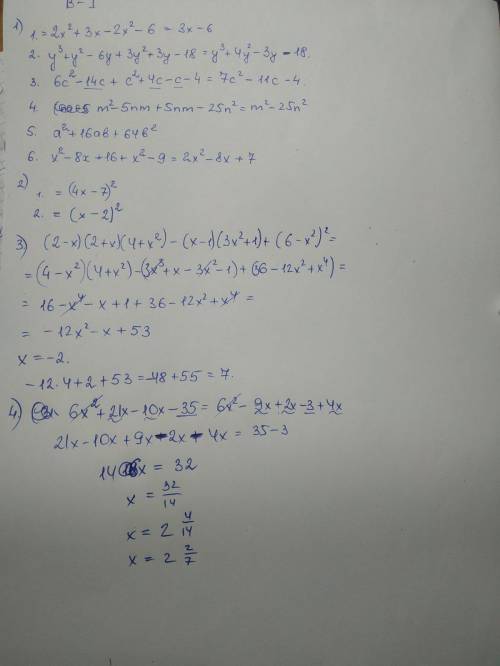 B-I
1) 1. = 2x² + 3x - 2x² - 6 = 3x - 6
2. y³ + y² - 6y + 3y² + 3y - 18 = y³ + 4y² - 3y - 18.
3. 6c² - 14c + c² + 4c - c - 4 = 7c² - 11c - 4.
4. m² - 5nm + 5nm - 25n² = m² - 25n²
5. a² + 16ab + 64b²
6. x² - 8x + 16 + x² - 9 = 2x² - 8x + 7
2) 1. = (4x - 7)²
2. = (x - 2)²
3) (2-x)(2+x)(4+x²) - (x-1)(3x²+1) + (6-x²)² =
= (4 - x²)(4 + x²) - (3x³ + x - 3x² - 1) + (36 - 12x² + x⁴) =
= 16 - x⁴ - x + 1 + 36 - 12x² + x⁴ =
= -12x² - x + 53
x = -2.
-12·4 + 2 + 53 = -48 + 55 = 7.
4) 6x² + 21x - 10x - 35 = 6x² - 9x + 2x - 3 + 4x
21x - 10x + 9x - 2x + 4x = 35 - 3
14x = 32
x = 32/14
x = 2 4/14
x = 2 2/7